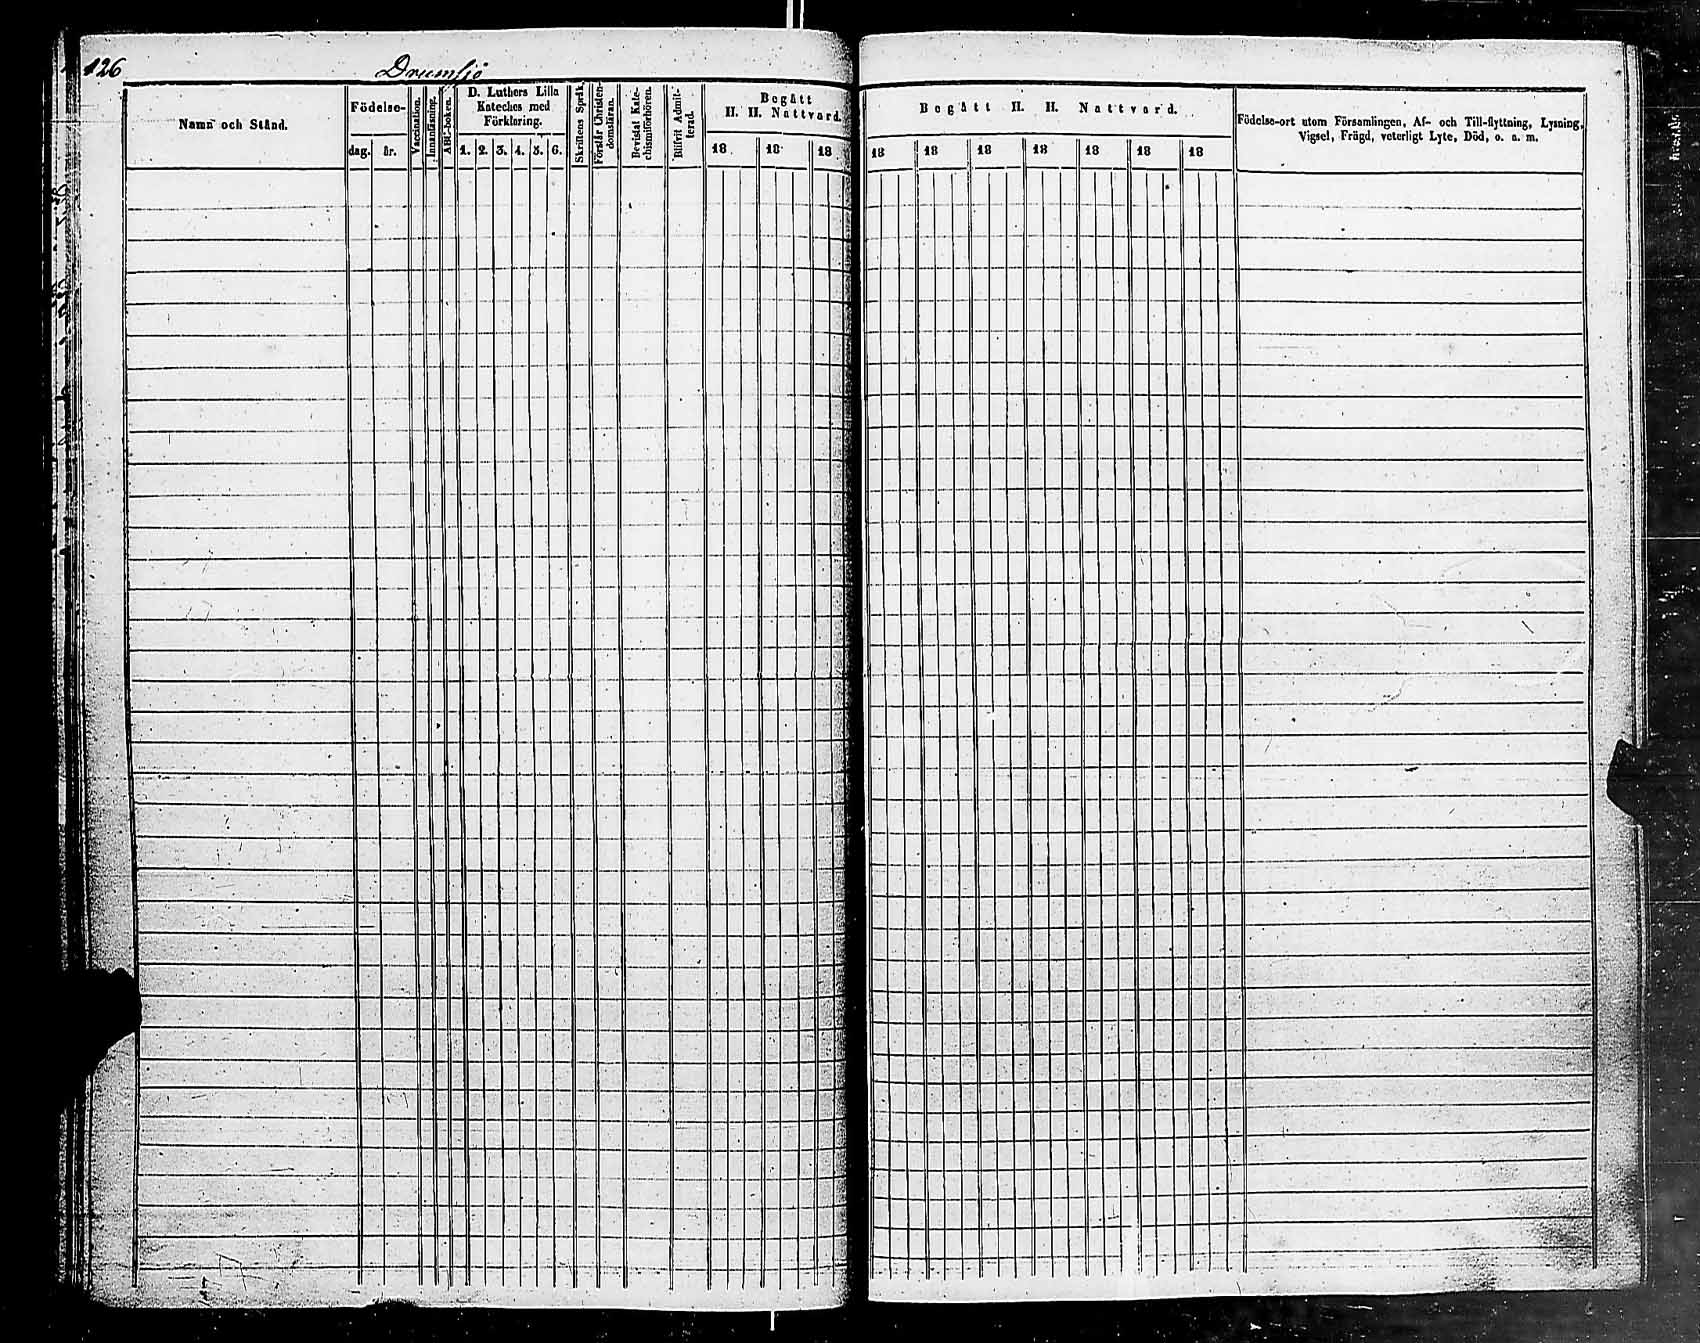 126
Drumsjö
Namn och Stånd.
Födelse-
dag.
år.
Vaccination.
Innanläsning.
ABC-boken.
D. Luthers Lilla
Kateches med
Förklaring.
1. 2. 3. 4. 5. 6.
Skriftens Språk.
Förstår Christen-
domsläran.
Bevistat Kate-
chismiförhören.
Blifvit Admit-
terad.
Begått
H. H. Nattvard.
18 18 18
Begått H. H. Nattvard.
18 18 18 18 18 18 18
Födelse-ort utom Församlingen, Af- och Till-flyttning, Lysning,
Vigsel, Frägd, veterligt Lyte, Död, o. a. m.